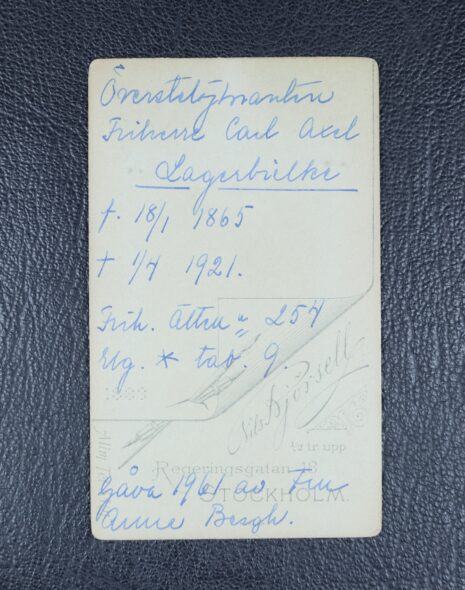 Överstelöjtnanten
Friherre Carl Axel
Lagerbielke
f. 18/1 1865
† 1/4 1921.
Frih. ätten n: 254
Elg. * tab. 9.
1883
Nils Björsell
½ tr. upp
Regeringsgatan 18
STOCKHOLM.
Gåva 1961 av Fru
Anne Bergh.